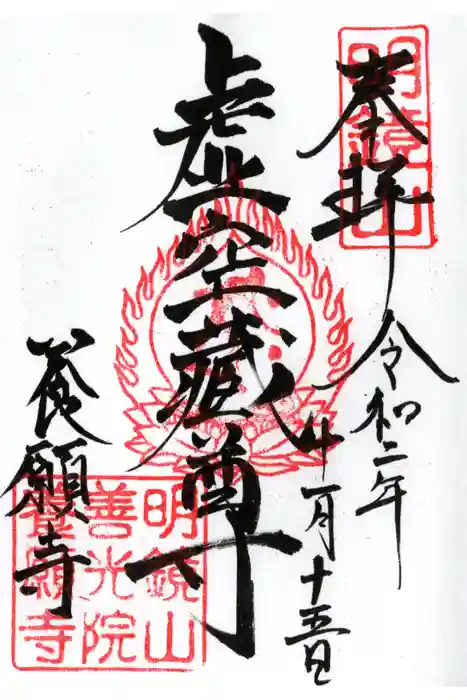 奉拝
令和二年
十一月十五日
虚空蔵尊
養願寺
明鏡山
明鏡山
善光院
養願寺